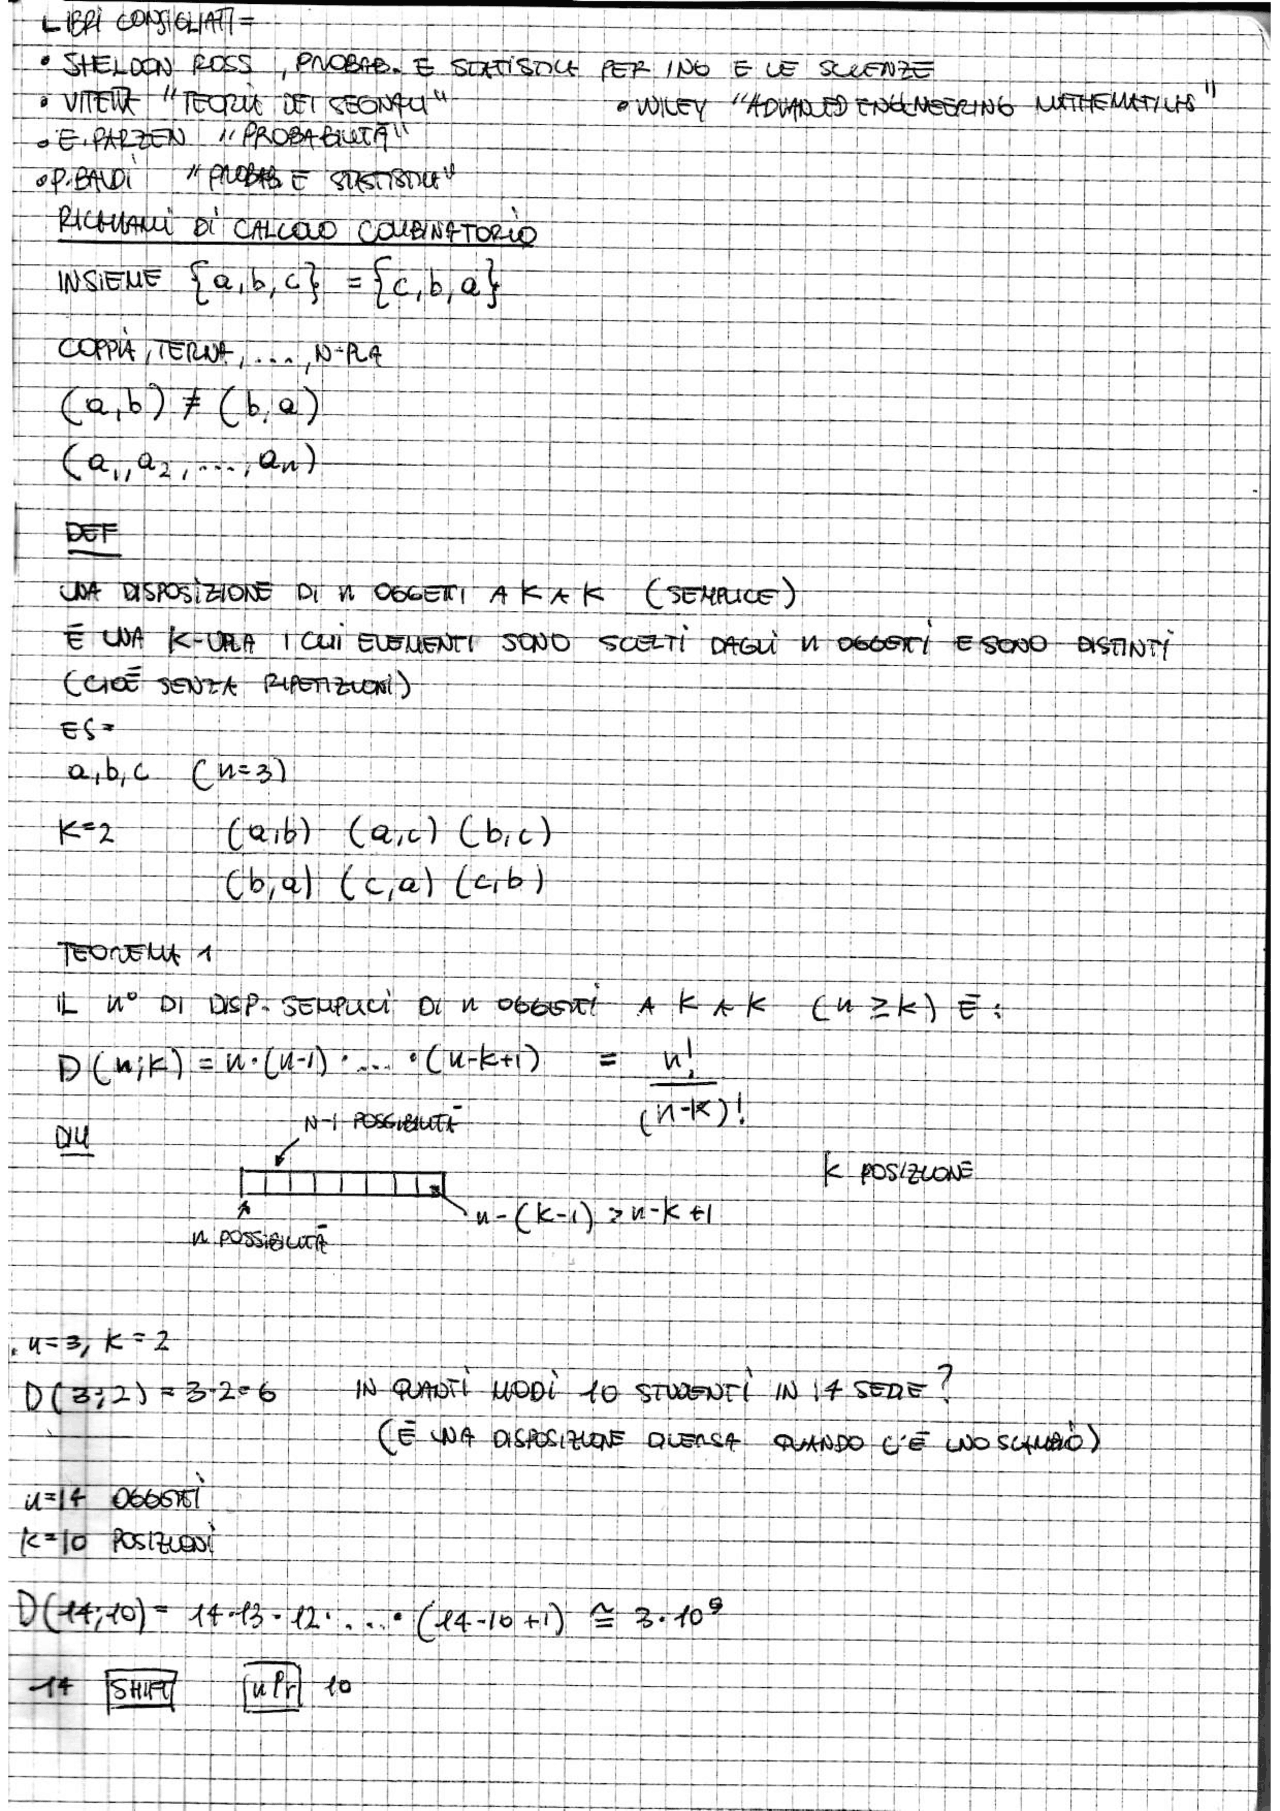 LIBRI CONSIGLIATI=
• SHELDON ROSS, PROBAB. E STATISTICA PER ING E LE SCIENZE
• VITETTA "TEORIA DEI SEGNALI" • WILEY "ADVANCED ENGINEERING MATHEMATICS"
• E. PARZEN "PROBABILITÀ"
• P. BALDI "PROBAB E STATISTICA"
RICHIAMI DI CALCOLO COMBINATORIO
INSIEME {a,b,c} = {c,b,a}
COPPIA, TERNA, ...., N-PLA
(a,b) ≠ (b,a)
(a₁, a₂, ...., aₙ)
DEF
UNA DISPOSIZIONE DI n OGGETTI A K A K (SEMPLICE)
È UNA K-UPLA I CUI ELEMENTI SONO SCELTI DAGLI n OGGETTI E SONO DISTINTI
(CIOÈ SENZA RIPETIZIONI)
ES=
a,b,c (n=3)
K=2 (a,b) (a,c) (b,c)
(b,a) (c,a) (c,b)
TEOREMA 1
IL n° DI DISP. SEMPLICI DI n OGGETTI A K A K (n ≥ k) È:
D(n;k) = n·(n-1)· .... ·(n-k+1) = n!/(n-k)!
DIM
N-1 POSSIBILITÀ
K POSIZIONE
n-(k-1) = n-k+1
n POSSIBILITÀ
. n=3, k=2
D(3;2) = 3·2=6 IN QUANTI MODI 10 STUDENTI IN 14 SEDIE?
(È UNA DISPOSIZIONE DIVERSA QUANDO C'È UNO SCAMBIO)
n=14 OGGETTI
k=10 POSIZIONI
D(14;10) = 14·13·12· .... ·(14-10+1) ≅ 3·10⁹
14 SHIFT nPr 10